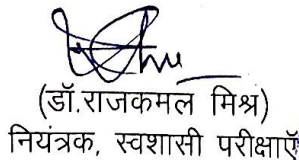 (डॉ.राजकमल मिश्र)
नियंत्रक, स्वशासी परीक्षाएँ